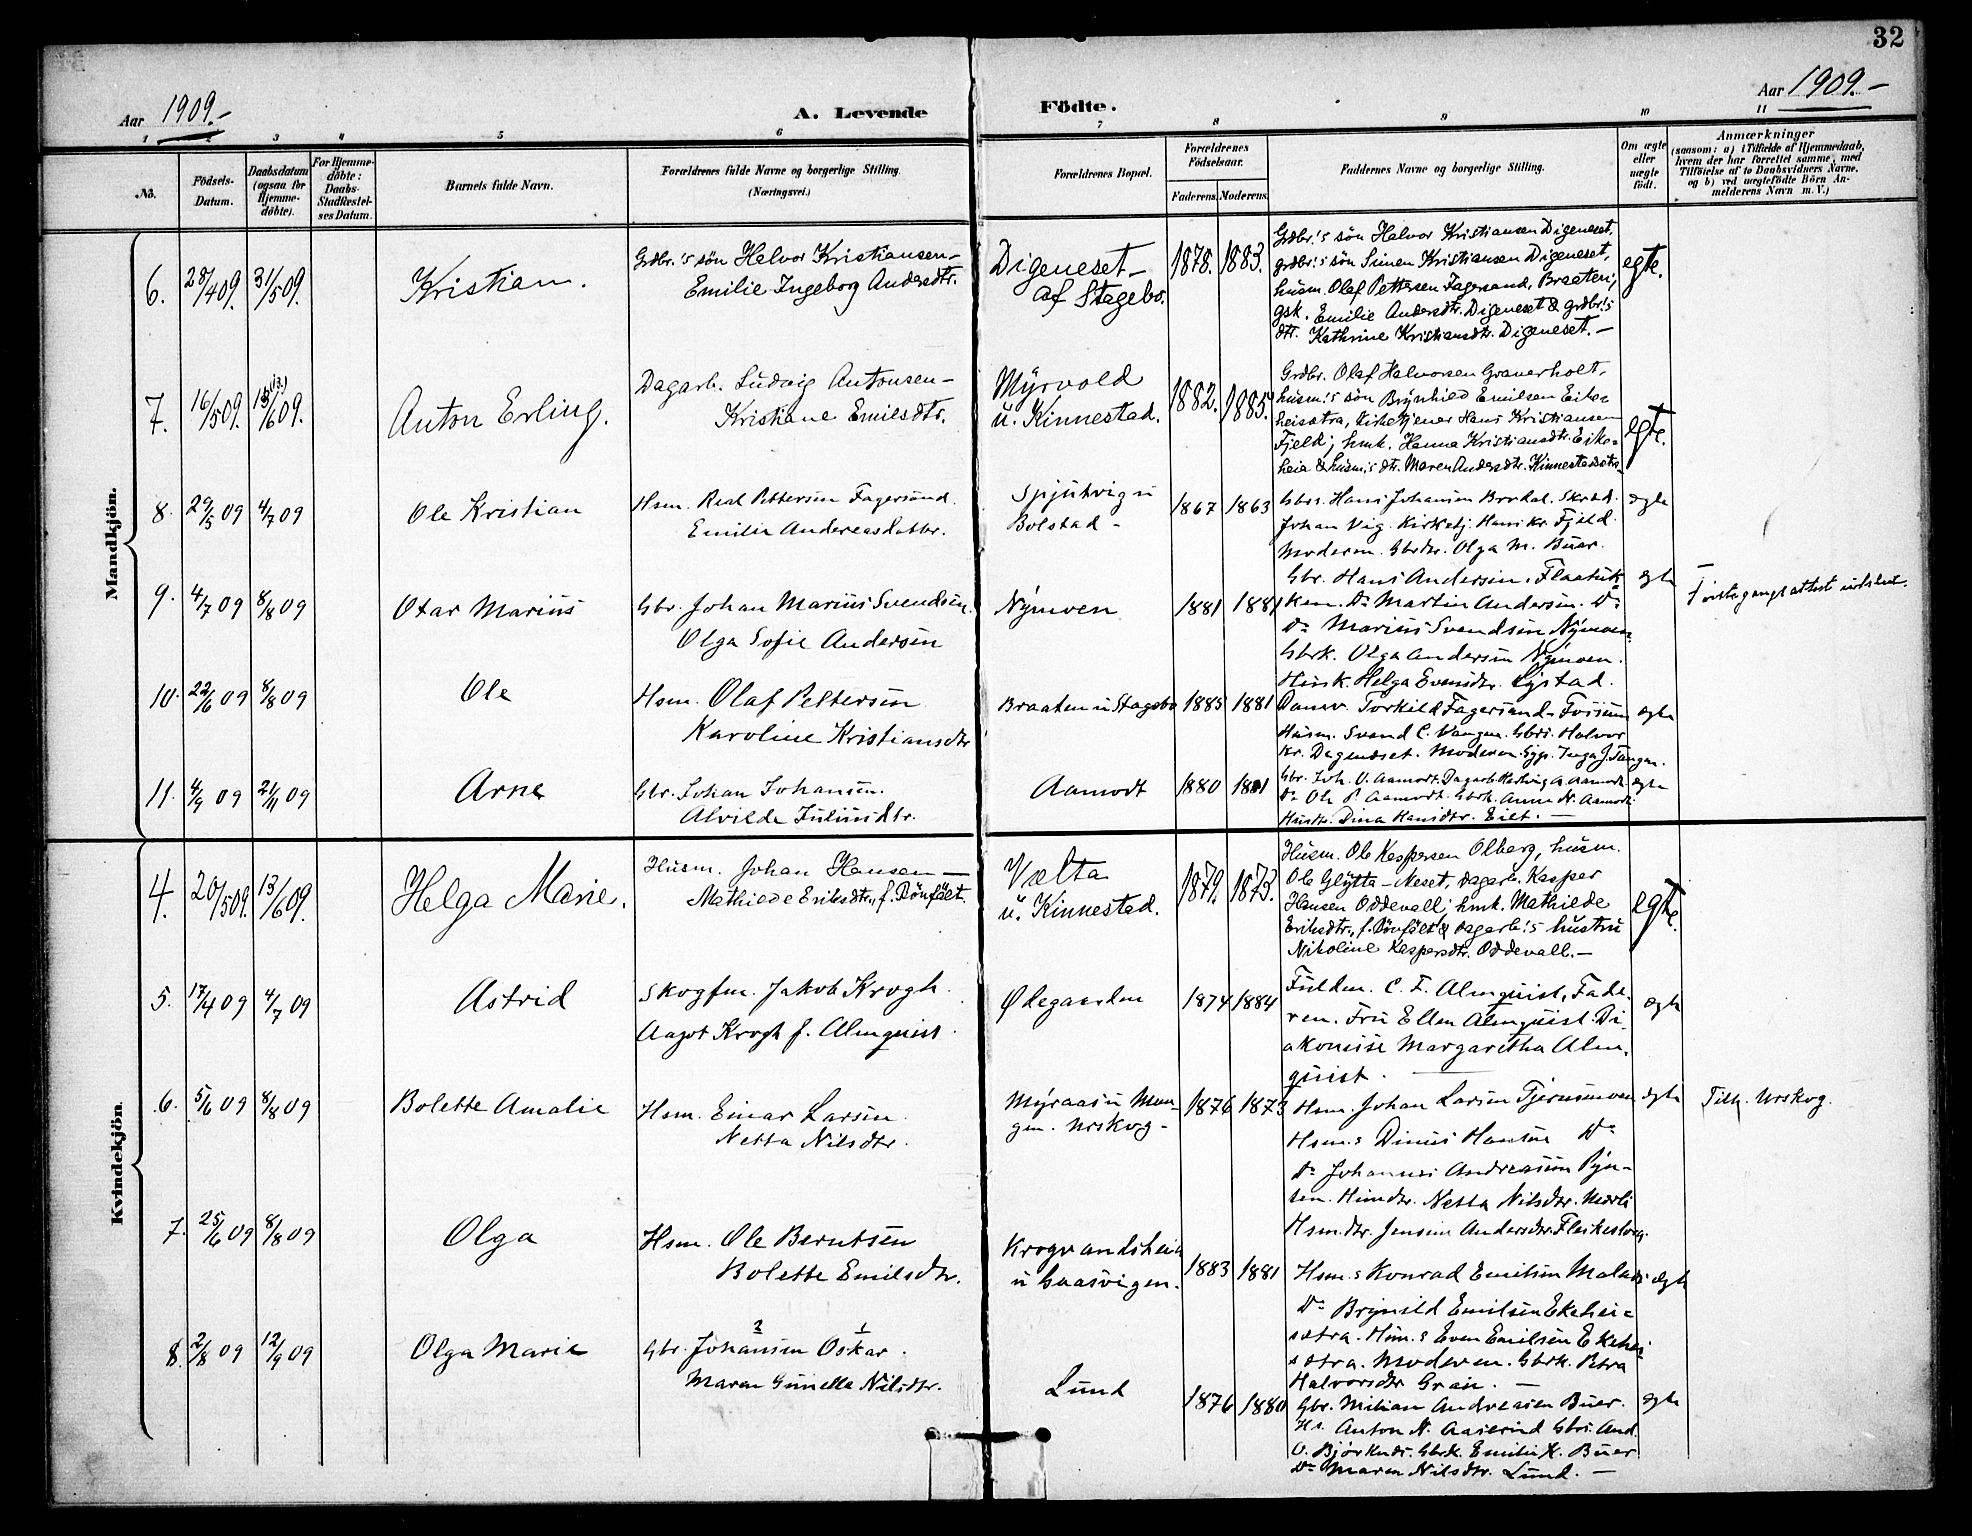 32
Aar 1909.-
A. Levende
Födte.
Aar 1909.-
1 2 3 4 5 6 7 8 9 10 11
No.
Födsels-
Datum.
Daabsdatum
(ogsaa for
Hjemme-
döbte).
For Hjemme-
döbte:
Daabs-
Stadfæstel-
ses Datum.
Barnets fulde Navn.
Forældrenes fulde Navne og borgerlige Stilling.
(Næringsvei.)
Forældrenes Bopæl.
Forældrenes
Födselsaar.
Faderens. Moderens.
Faddernes Navne og borgerlige Stilling.
Om ægte
eller
uægte
födt.
Anmærkninger
(saasom: a) i Tilfælde af Hjemmedaab,
hvem der har forrettet samme, med
Tilföielse af to Daabsvidners Navne.
og b) ved uægtefödte Börn An-
melderens Navn m. V.)
Mandkjön.
6. 28/409. 31/509. Kristian.
Grdbr.'s sön Halvor Kristiansen-
Emilie Ingeborg Andersdtr.
Digeneset-
af Stagebo.
1878. 1883.
Grdbr.'s sön Halvor Kristiansen Digeneset,
grdbr.'s sön Simen Kristiansen Digeneset,
husm. Olaf Pettersen Fagersand, Braaten;
gsk. Emilie Andersdtr. Digeneset & grdbr.'s
dtr. Kathrine Kristiansdtr. Digeneset.-
egte.
7. 16/509. 13/609. (13.) Anton Erling.
Dagarb. Ludvig Antonsen-
Kristiane Emilsdtr.
Myrvold
u. Kinnestad.
1882. 1885.
Grdbr. Olaf Halvorsen Graverholt,
husm.'s sön Brynhild Emilsen Eike-
heisætra, Kirketjener Hans Kristiansen
Fjeld; hmk. Hanna Kristiansdtr. Eike-
heia & husm.'s dtr. Maren Andersdtr. Kinnestadsætra
egte.
8. 29/5 09 4/7 09 Ole Kristian
Hsm. Pettersen Fagersand.
Emilie Andreasdatter.
Spjutvig u
Bolstad-
1867 1863
Gbrs. Hans Johansen Brodal. Skræd.
Johan Vig. Kirketj. Hans Kr. Fjeld.
Moderen. Gbrdtr. Olga M. Buer.
ægte
9. 4/7 09 8/8 09 Otar Marius
Gbr. Johan Marius Svendsen.
Olga Sofie Andersen
Nymoen
1881 1881
Gbr. Hans Andersen. Flaatuk-
ken. Do Martin Andersen. Do
Do Marius Svendsen Nymoen.
Gbrk. Olga Andersen Nymoen.
Husk. Helga Evensdtr. Lystad.
ægte
Förstegangsattest udstedt.
10. 22/6 09 8/8 09 Ole
Hsm. Olaf Pettersen
Karoline Kristiansdtr
Braaten u Stagebo
1885 1881
Torkild Fagersand.
Husm. Svend C. Vangen. Gbrs. Halvor
Kr. Degeneset. Moderen. Inga J. Tangen.
ægte
11. 4/9 09 21/11 09 Arne
Gbr. Johan Johansen.
Alvilde Juliusdtr.
Aamodt
1880 1881
Gbr. Joh. U. Aamodt. Dagarb Hartvig A Aamodt
Do Ole P. Aamodt. Gbrk. Anne N. Aamodt
Husdtr. Dina Hansdtr. Eiet.-
ægte
Kvindekjön.
4. 20/509. 13/609. Helga Marie.
Husm. Johan Hansen-
Mathilde Eriksdtr., f. Rönfält.
Vælta
u. Kinnestad.
1879. 1873.
Husm. Ole Kaspersen Olberg, husm.
Ole Glytta-Neset, dagarb. Kasper
Hansen Oddevall; hmk. Mathilde
Eriksdtr., f. Rönfält & dagarb.'s hustru
Nikoline Kaspersdtr. Oddevall.-
egte.
5. 17/4 09 4/7 09 Astrid
Skogfm. Jakob Krogh.
Aagot Krogh f. Almquist.
Ødegaarden
1874 1884
Fuldm. C. F. Almquist, Fade-
ren. Fru Ellen Almquist. Di-
akonisse Margaretha Alm-
quist.
ægte
6. 5/6 09 8/8 09 Bolette Amalie
Hsm. Einar Larsen.
Netta Nilsdtr.
Myraas u Mon-
gen. Urskog-
1876 1873
Hsm. Johan Larsen Tjernsmoen
Hsm.s Dinus Hansen Do
Do Johannes Andreassen Pyn-
ten. Husdtr. Netta Nilsdtr. Mærli
Hsm.dtr. Jensine Andersdtr. Fleskesborg.
ægte
Tilh. Urskog.
7. 25/6 09 8/8 09 Olga
Hsm. Ole Berntsen
Bolette Emilsdtr.
Krogvandsheia
u Gaasvigen.
1883 1881
Hsm.s Konrad Emilsen
Do Brynild Emilsen Ekehei-
sætra. Hsm.s Even Emilsen Ekehei-
sætra. Moderen. Gbrk. Petra
Halvorsdtr Gran.-
ægte
8. 2/8 09 12/9 09 Olga Marie
2 1
Gbr. Johansen Oskar.
Maren Gunella Nilsdtr.
Lund
1876 1880
Gbr. Milian Andresen Buer.
Hr. Anton N. Aaserud Gbrs. And.
O. Bjørknes. Gbrk. Emilie K. Buer
Do Maren Nilsdtr. Lund.-
ægte